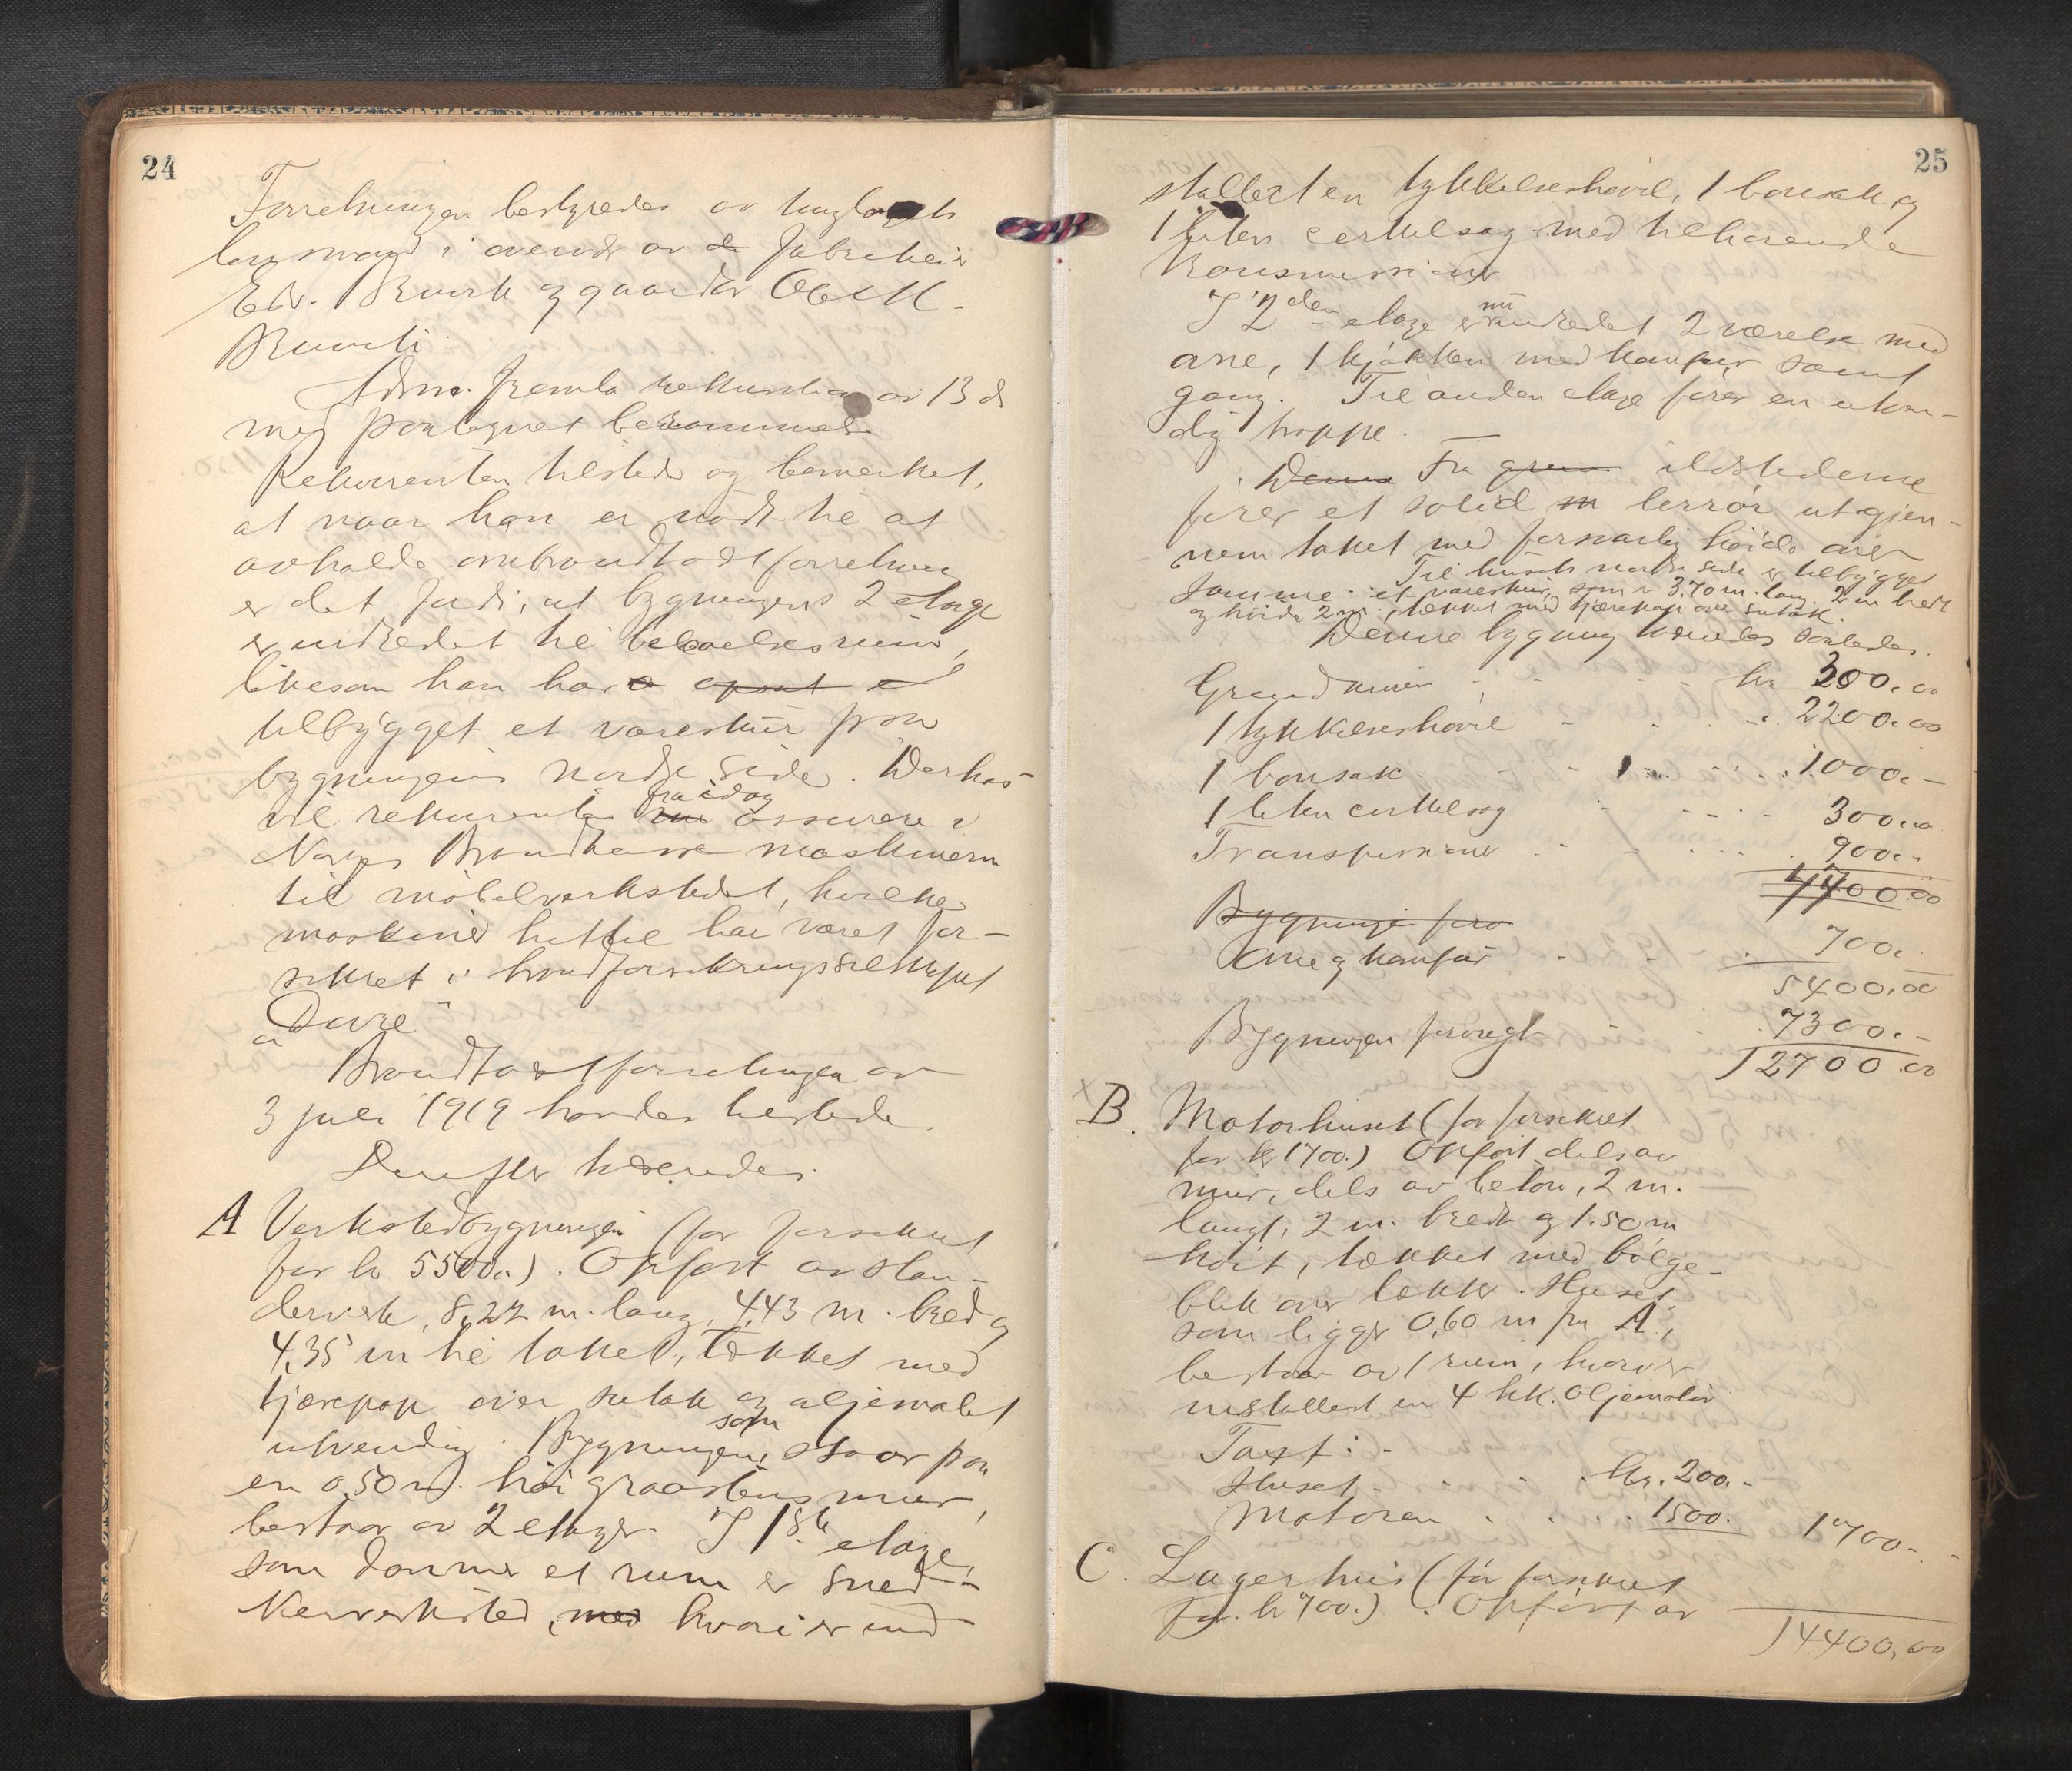 24
Forretningen bestyredes av
lensmand i overvær av
Edv. og gaardbr Ole M.
Adm. fremla rekvisition av 13 ds
med paategnet berammelse
Rekvirenten tilstede og bemerket,
at naar han er nødt til at
avholde ombrandtakstforretning
er det fordi, at bygningens 2 etage
er indredet til beboelsesrum,
likesom han har
tilbygget et vareskur paa
bygningens nordre side. Derhos
vil rekvirenten fra idag assurere i
Norges Brandkasse maskinerne
til møbelverkstedet, hvilke
maskiner hittil har været for-
sikret i brandforsikringsselskapet
"Dovre"
Brandtakstforretningen av
3 juli 1919 havdes tilstede.
Derefter taxeredes.
A Verkstedbygningen (før forsikret
for kr 5500.) . Opført av stan-
derverk, 8,27 m. lang, 4,43 m. bred og
4,35 m til taket, tækket med
tjærepap over sutak og oljemalet
utvendig. Bygningen, som staar paa
en 0,50 m. høi graastensmur,
bestaar av 2 etager. I 1ste etage,
som danner et rum er sned-
kerverksted, med hvori er ind-
25
stallert en tykkelseshøvel, 1 bonsak og
1 liten cirkelsag med tilhørende
transmissioner
I 2den etage er nu indredet 2 værelse med
ovne, 1 kjøkken med komfur samt
gang. Til anden etage fører en utven-
dig trappe. —
Denne Fra ildstederne
fører et solid lerrør ut gjen-
nem taket med forsvarlig høide over
samme. Til husets nordre side er tilbygget
et vareskur, som er 3,70 m. lang, 2 m bredt
og høide 2 m. tækket med tjærepap over sutak.
Denne bygning taxeredes saaledes.
Grundmuren - - - kr 300.00
1 tykkelseshøvel - - - 2200.00
1 bonsak - - - 1000.-
1 liten cirkelsag - - - 300.00
Transmissioner - - - 900.-
4400.00
Bygningen forø
Ovne og komfur - - 700.-
5400.00
Bygningen forøvrigt - - 7300.-
12700.00
B. Motorhuset (før forsikret
for kr 1700.) Opført dels av
mur, dels av beton, 2 m.
langt, 2 m. bredt og 1.50 m
høit, tækket med bølge-
blik over lækter. Huset,
som ligger 0,60 m fra A,
bestaar av 1 rum, hvori er
installert en 4 hk. Oljemotor
Taxt: -
Huset - - - kr. 200.-
Motoren . . . . 1500. 1700.-
C. Lagerhus (før forsikret
for kr 700.) . Opført av
14400,00